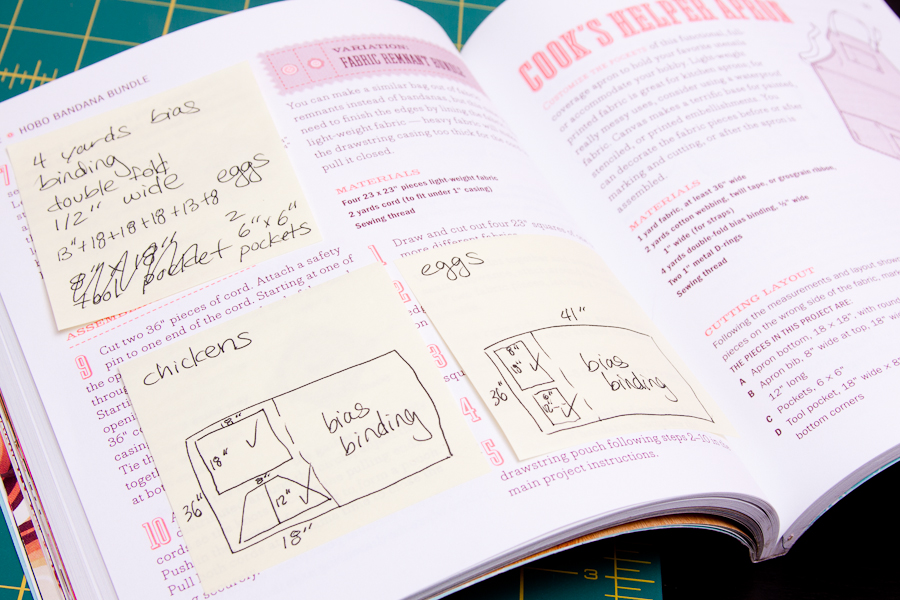 HOBO BANDANA BUNDLE
4 yards bias
binding
double fold
1/2" wide eggs
13"+18+18+18+13+8
2
6"x6"
pockets
ASSEMB
9
Cut two 36" pieces of cord. Attach a safety
pin to one end of the cord. Starting at one of
the
throu
Starti
open
36"
casin
Tie th
togeth
at bot
10
cords
Push
Pull
securely.
chickens
18"
18"
8"
12"
36"
18"
bias
binding
VARIATION:
FABRIC REMNANT BUNDLE
You can make a similar bag out of
remnants instead of bandanas, but
need to finish the edges by lining the
light-weight fabric — heavy
the drawstring casing too thick for
pull it closed.
MATERIALS
Four 23 x 23" pieces light-weight fabric
2 yards cord (to fit under 1" casing)
Sewing thread
1
Draw and cut out four 23" square
more different
2
3
squ
4
5
drawstring pouch following steps 2-10
main project instructions.
eggs
41"
8"
18"
6"
12"
36"
bias
binding
COOK'S HELPER APRON
CUSTOMIZE THE POCKETS of this functional, full-
coverage apron to hold your favorite utensils
or accommodate your hobby. Light-weight
printed fabric is great for kitchen use; for
really messy uses, consider using
fabric. Canvas makes a terrific base for painted,
stenciled, or printed embellishments. You
can decorate the fabric pieces before or after
marking and cutting, or after the apron is
assembled.
MATERIALS
1 yard fabric, at least 36" wide
2 yards cotton webbing, twill tape, or grosgrain ribbon,
1" wide (for straps)
4 yards double fold bias binding, ½" wide
Two 1" metal D-rings
Sewing thread
CUTTING LAYOUT
Following the measurements and layout show
pieces on the wrong side of the fabric, mark
THE PIECES IN THIS PROJECT ARE:
A Apron bottom, 18 x 18" with round
B Apron bib, 8" wide at top, 18" wid
12" long
C Pockets, 6 x 6"
D Tool pocket, 18" wide x 8
bottom corners
3